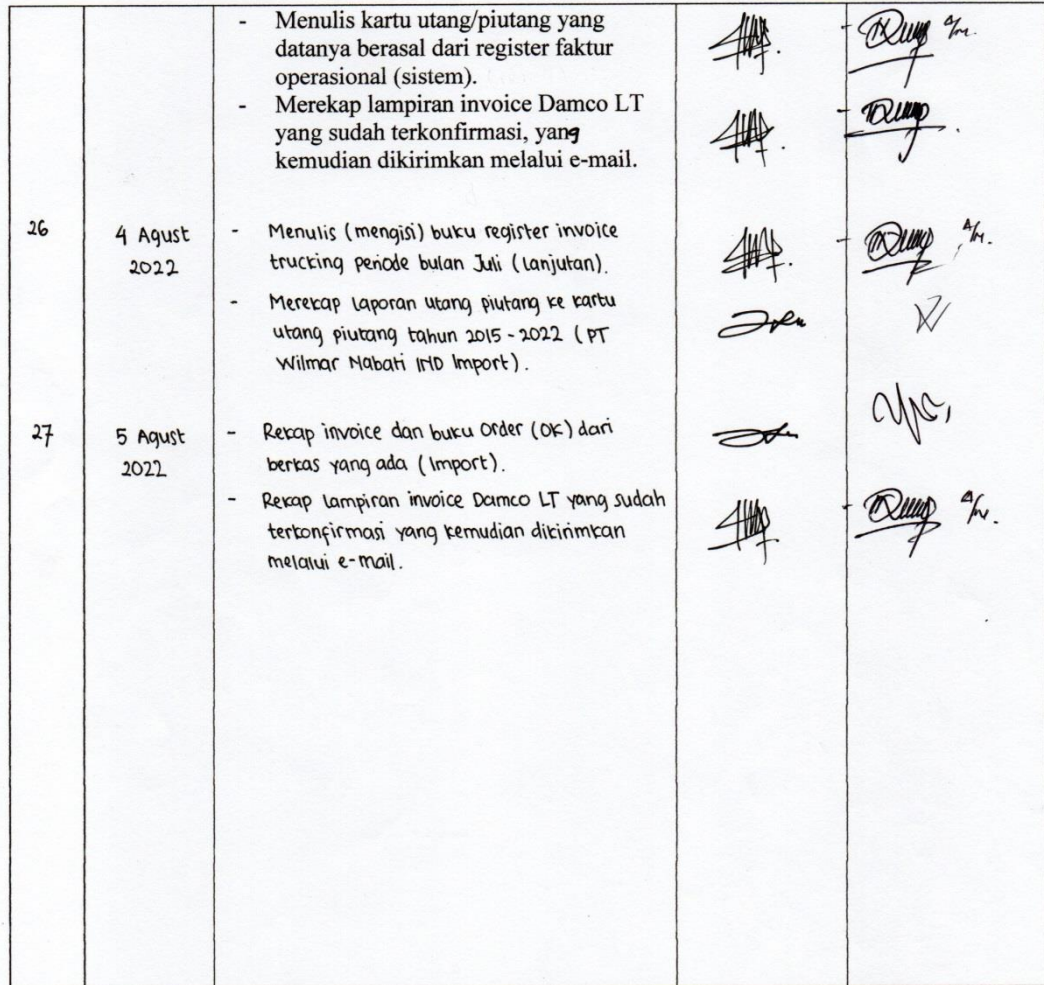 - Menulis kartu utang/piutang yang
datanya berasal dari register faktur
operasional (sistem).
- Merekap lampiran invoice Damco LT
yang sudah terkonfirmasi, yang
kemudian dikirimkan melalui e-mail.
26 4 Agust - Menulis (mengisi) buku register invoice
2022 trucking periode bulan Juli (lanjutan).
- Merekap laporan utang piutang ke kartu
utang piutang tahun 2015 - 2022 (PT
Wilmar Nabati IND Import).
27 5 Agust - Rekap invoice dan buku Order (OK) dari
2022 berkas yang ada (Import).
- Rekap lampiran invoice Damco LT yang sudah
terkonfirmasi yang kemudian dikirimkan
melalui e-mail.